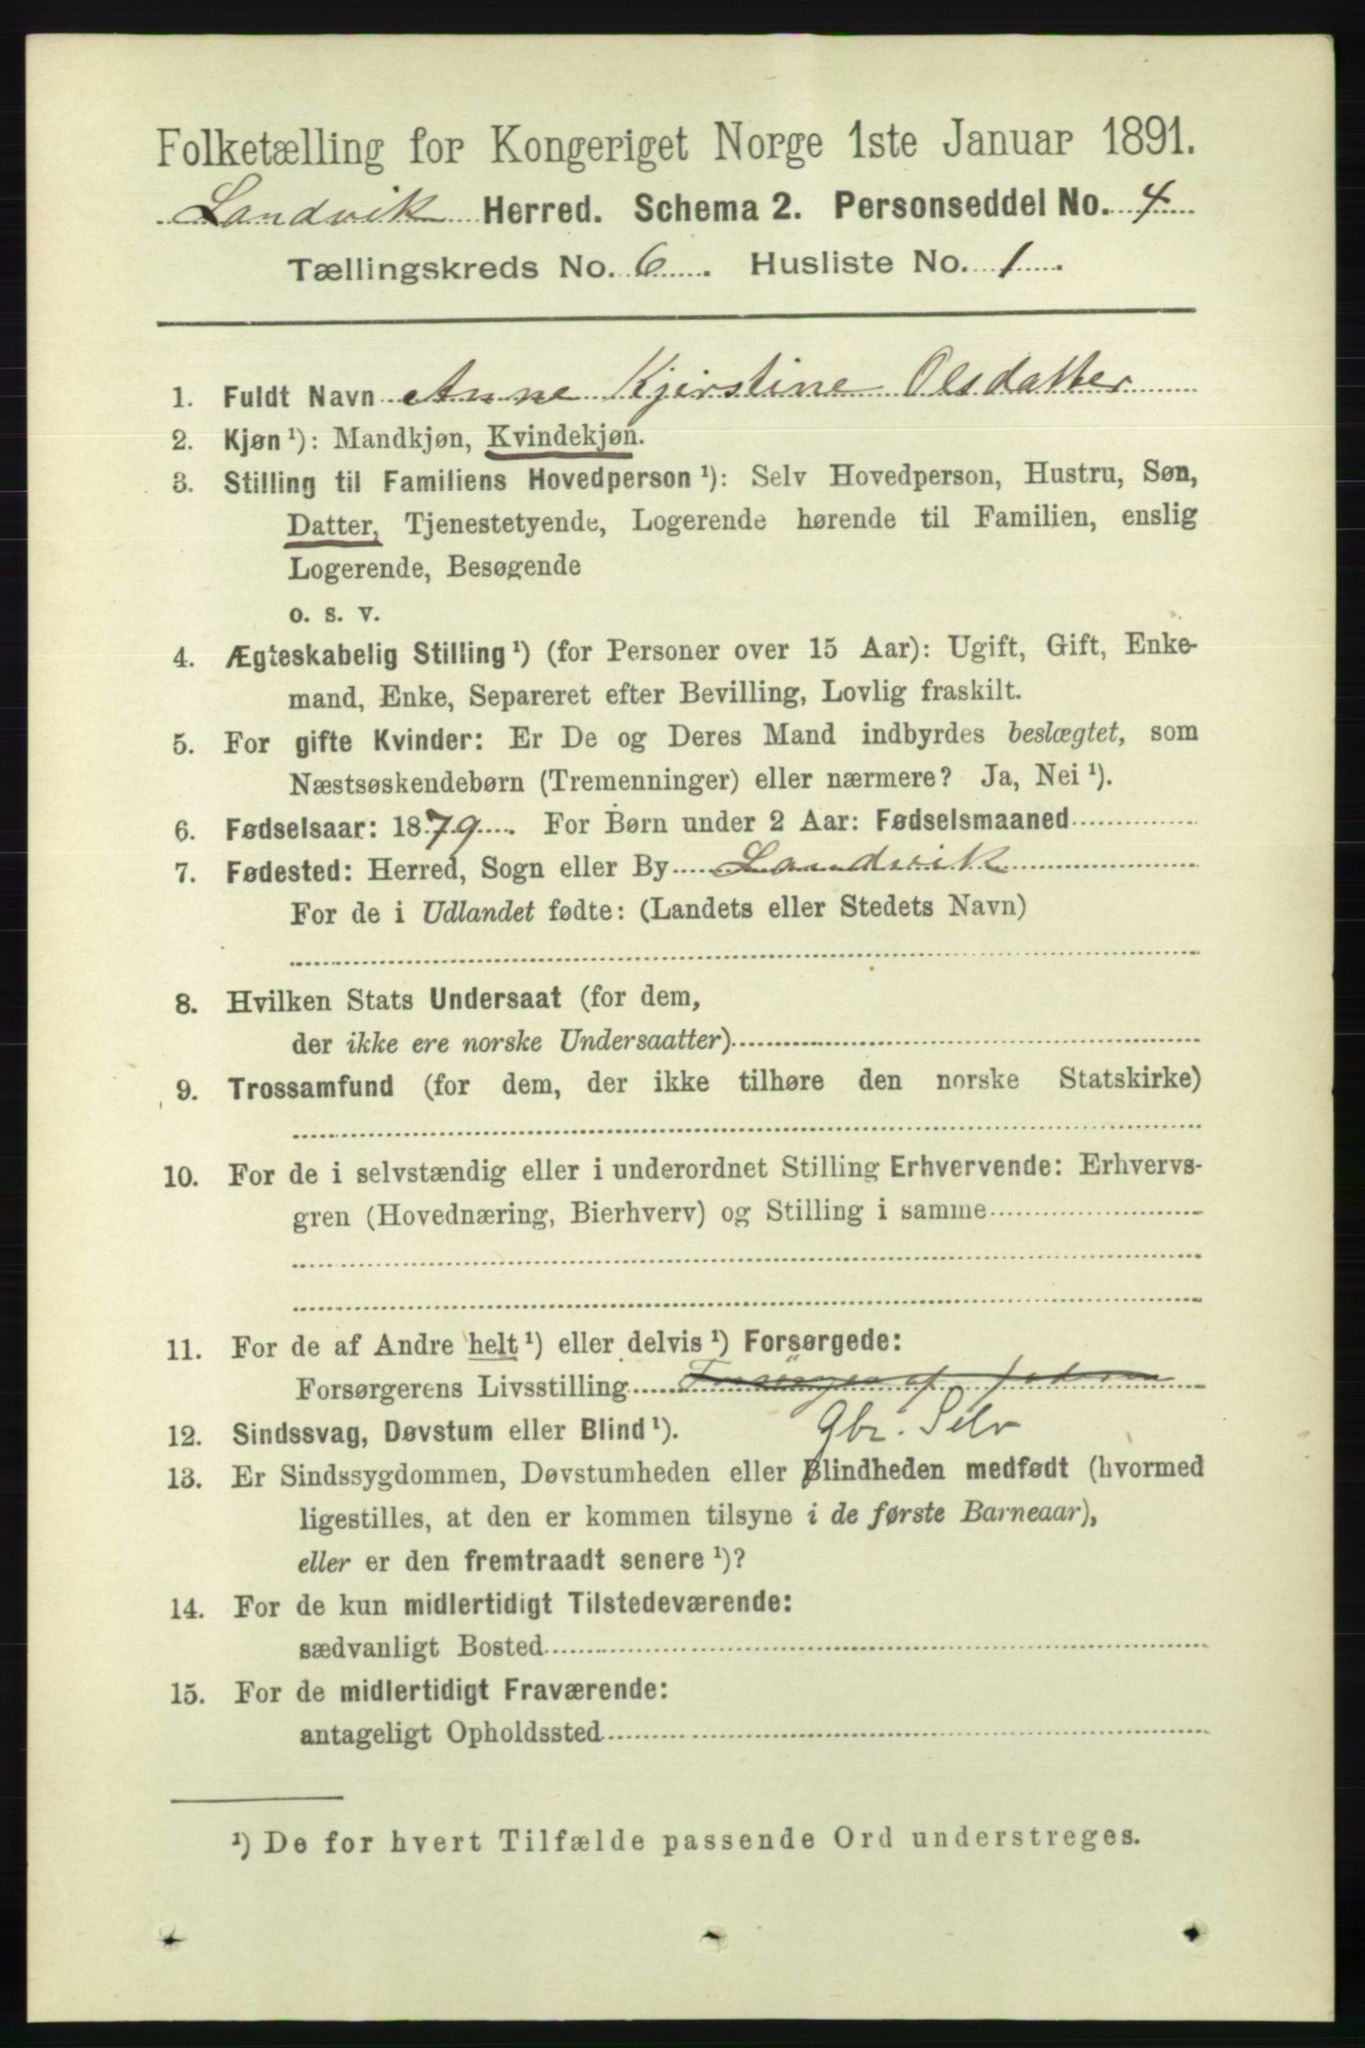 Folketælling for Kongeriget Norge 1ste Januar 1891.
Landvik Herred. Schema 2. Personseddel No. 4
Tællingskreds No. 6 . Husliste No. 1 .
1. Fuldt Navn Anne Kjirstine Olsdatter
2. Kjøn ¹): Mandkjøn, Kvindekjøn.
3. Stilling til Familiens Hovedperson ¹): Selv Hovedperson, Hustru, Søn,
Datter, Tjenestetyende, Logerende hørende til Familien, enslig
Logerende, Besøgende
o. s. v.
4. Ægteskabelig Stilling ¹) (for Personer over 15 Aar): Ugift, Gift, Enke-
mand, Enke, Separeret efter Bevilling, Lovlig fraskilt.
5. For gifte Kvinder: Er De og Deres Mand indbyrdes beslægtet, som
Næstsøskendebørn (Tremenninger) eller nærmere? Ja, Nei ¹).
6. Fødselsaar: 1879. For Børn under 2 Aar: Fødselsmaaned
7. Fødested: Herred, Sogn eller By Landvik
For de i Udlandet fødte: (Landets eller Stedets Navn)
8. Hvilken Stats Undersaat (for dem,
der ikke ere norske Undersaatter)
9. Trossamfund (for dem, der ikke tilhøre den norske Statskirke)
10. For de i selvstændig eller i underordnet Stilling Erhvervende: Erhvervs-
gren (Hovednæring, Bierhverv) og Stilling i samme
11. For de af Andre helt ¹) eller delvis ¹) Forsørgede:
Forsørgerens Livsstilling
Gbr. Selv
12. Sindssvag, Døvstum eller Blind ¹).
13. Er Sindssygdommen, Døvstumheden eller Blindheden medfødt (hvormed
ligestilles, at den er kommen tilsyne i de første Barneaar),
eller er den fremtraadt senere ¹)?
14. For de kun midlertidigt Tilstedeværende:
sædvanligt Bosted
15. For de midlertidigt Fraværende:
antageligt Opholdssted
¹) De for hvert Tilfælde passende Ord understreges.